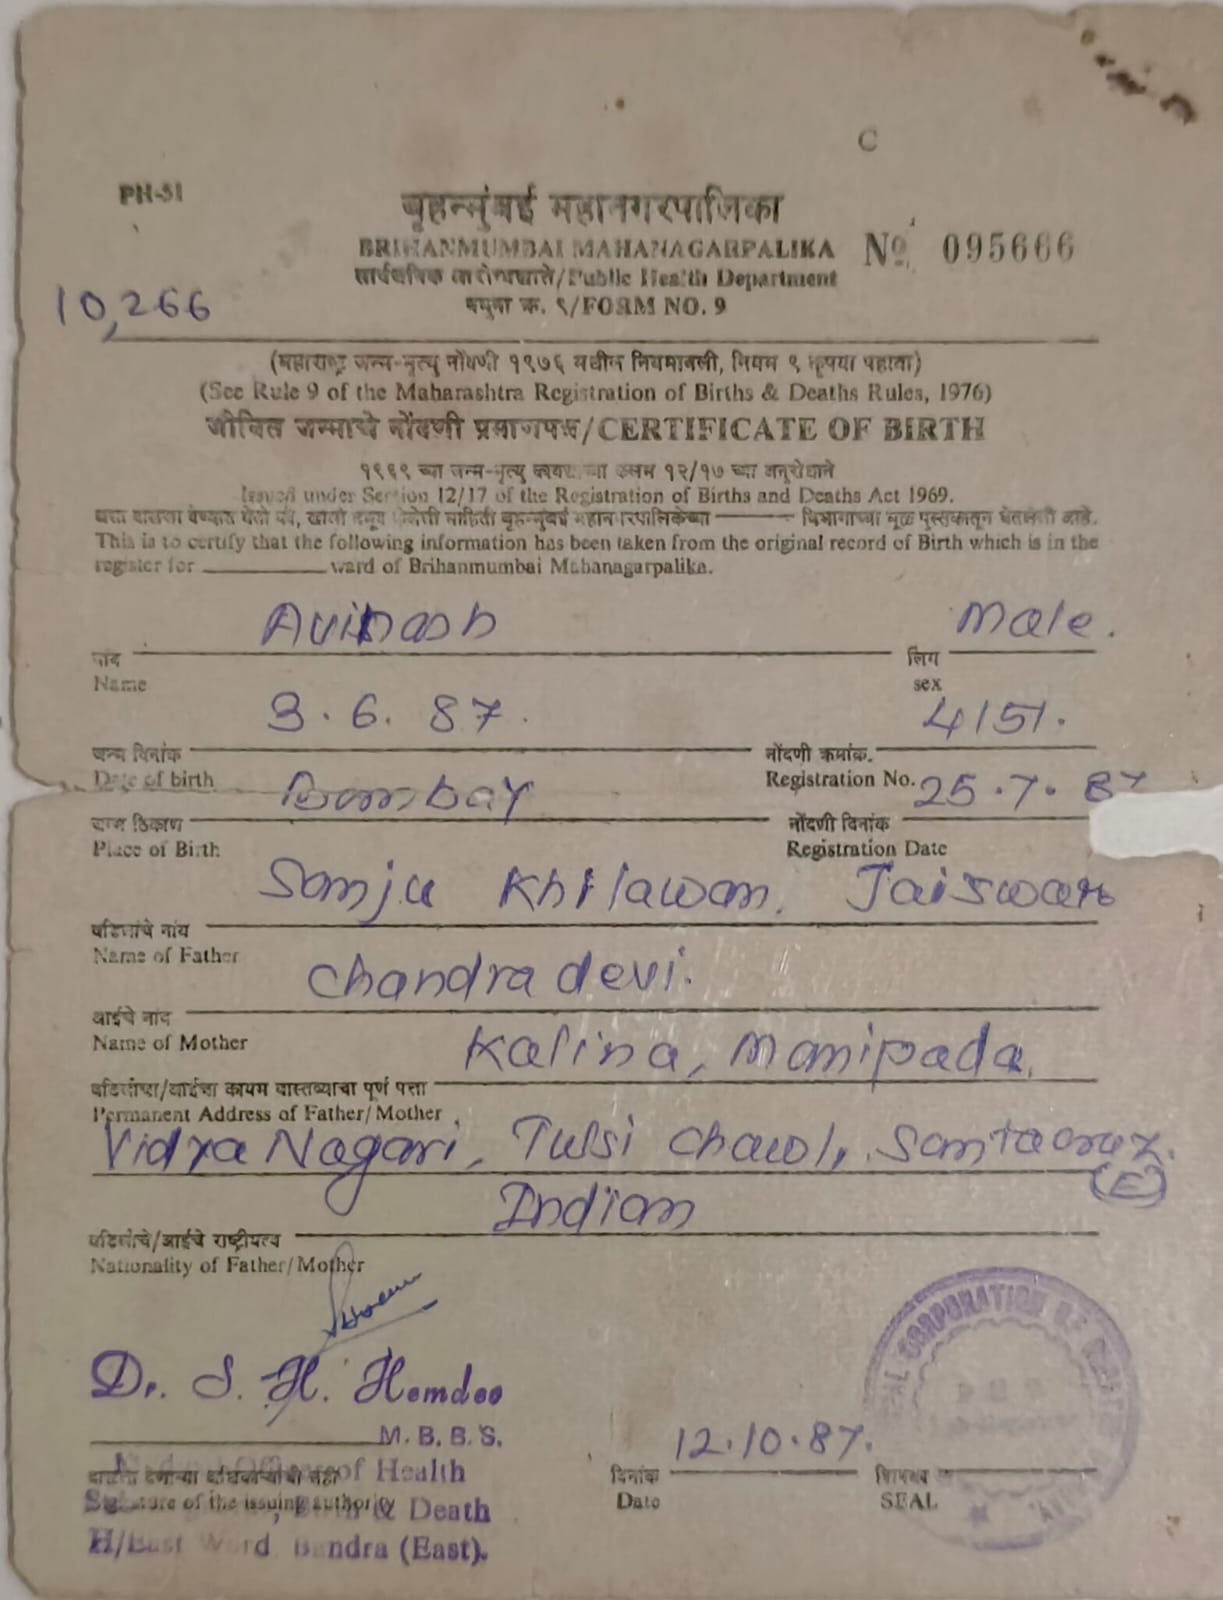 C
PH-51
बृहन्मुंबई महानगरपालिका
BRIHANMUMBAI MAHANAGARPALIKA
Nº 095666
सार्वजनिक आरोग्य खाते/Public Health Department
10,266
नमुना क्र. ९/FORM NO. 9
(महाराष्ट्र जन्म-मृत्यू नोंदणी १९७६ मधील नियमावली, नियम ९ कृपया पहावा)
(See Rule 9 of the Maharashtra Registration of Births & Deaths Rules, 1976)
जीवित जन्माचे नोंदणी प्रमाणपत्र/CERTIFICATE OF BIRTH
१९६९ च्या जन्म-मृत्यू कायद्याच्या कलम १२/१७ च्या अनुरोधाने
Issued under Section 12/17 of the Registration of Births and Deaths Act 1969.
असा दाखला देण्यात येतो की, खाली नमूद केलेली माहिती बृहन्मुंबई महानगरपालिकेच्या विभागाच्या मूळ पुस्तकातून घेतलेली आहे.
This is to certify that the following information has been taken from the original record of Birth which is in the
register for ward of Brihanmumbai Mahanagarpalika.
Avinash Male.
नांव लिंग
Name sex
3.6.87. 4151.
जन्म दिनांक नोंदणी क्रमांक.
Date of birth Registration No. 25.7.87
Bombay
जन्म ठिकाण नोंदणी दिनांक
Place of Birth Registration Date
Sanju Khilawan. Jaiswar
वडिलांचे नांव
Name of Father
Chandradevi.
आईचे नांव
Name of Mother
Kalina, Manipada,
वडिलांचा/आईचा कायम वास्तव्याचा पूर्ण पत्ता
Permanent Address of Father/Mother
Vidya Nagari, Tulsi Chawl, Santacruz.
(E)
Indian
वडिलांचे/आईचे राष्ट्रीयत्व
Nationality of Father/Mother
Dr. S. H.
M. B. B. S.
12.10.87.
of Health
दाखला देणाऱ्या अधिकाऱ्याची सही दिनांक
Signature of the issuing authority Date SEAL
& Death
H/East Ward Bandra (East).
CORPORATION OF